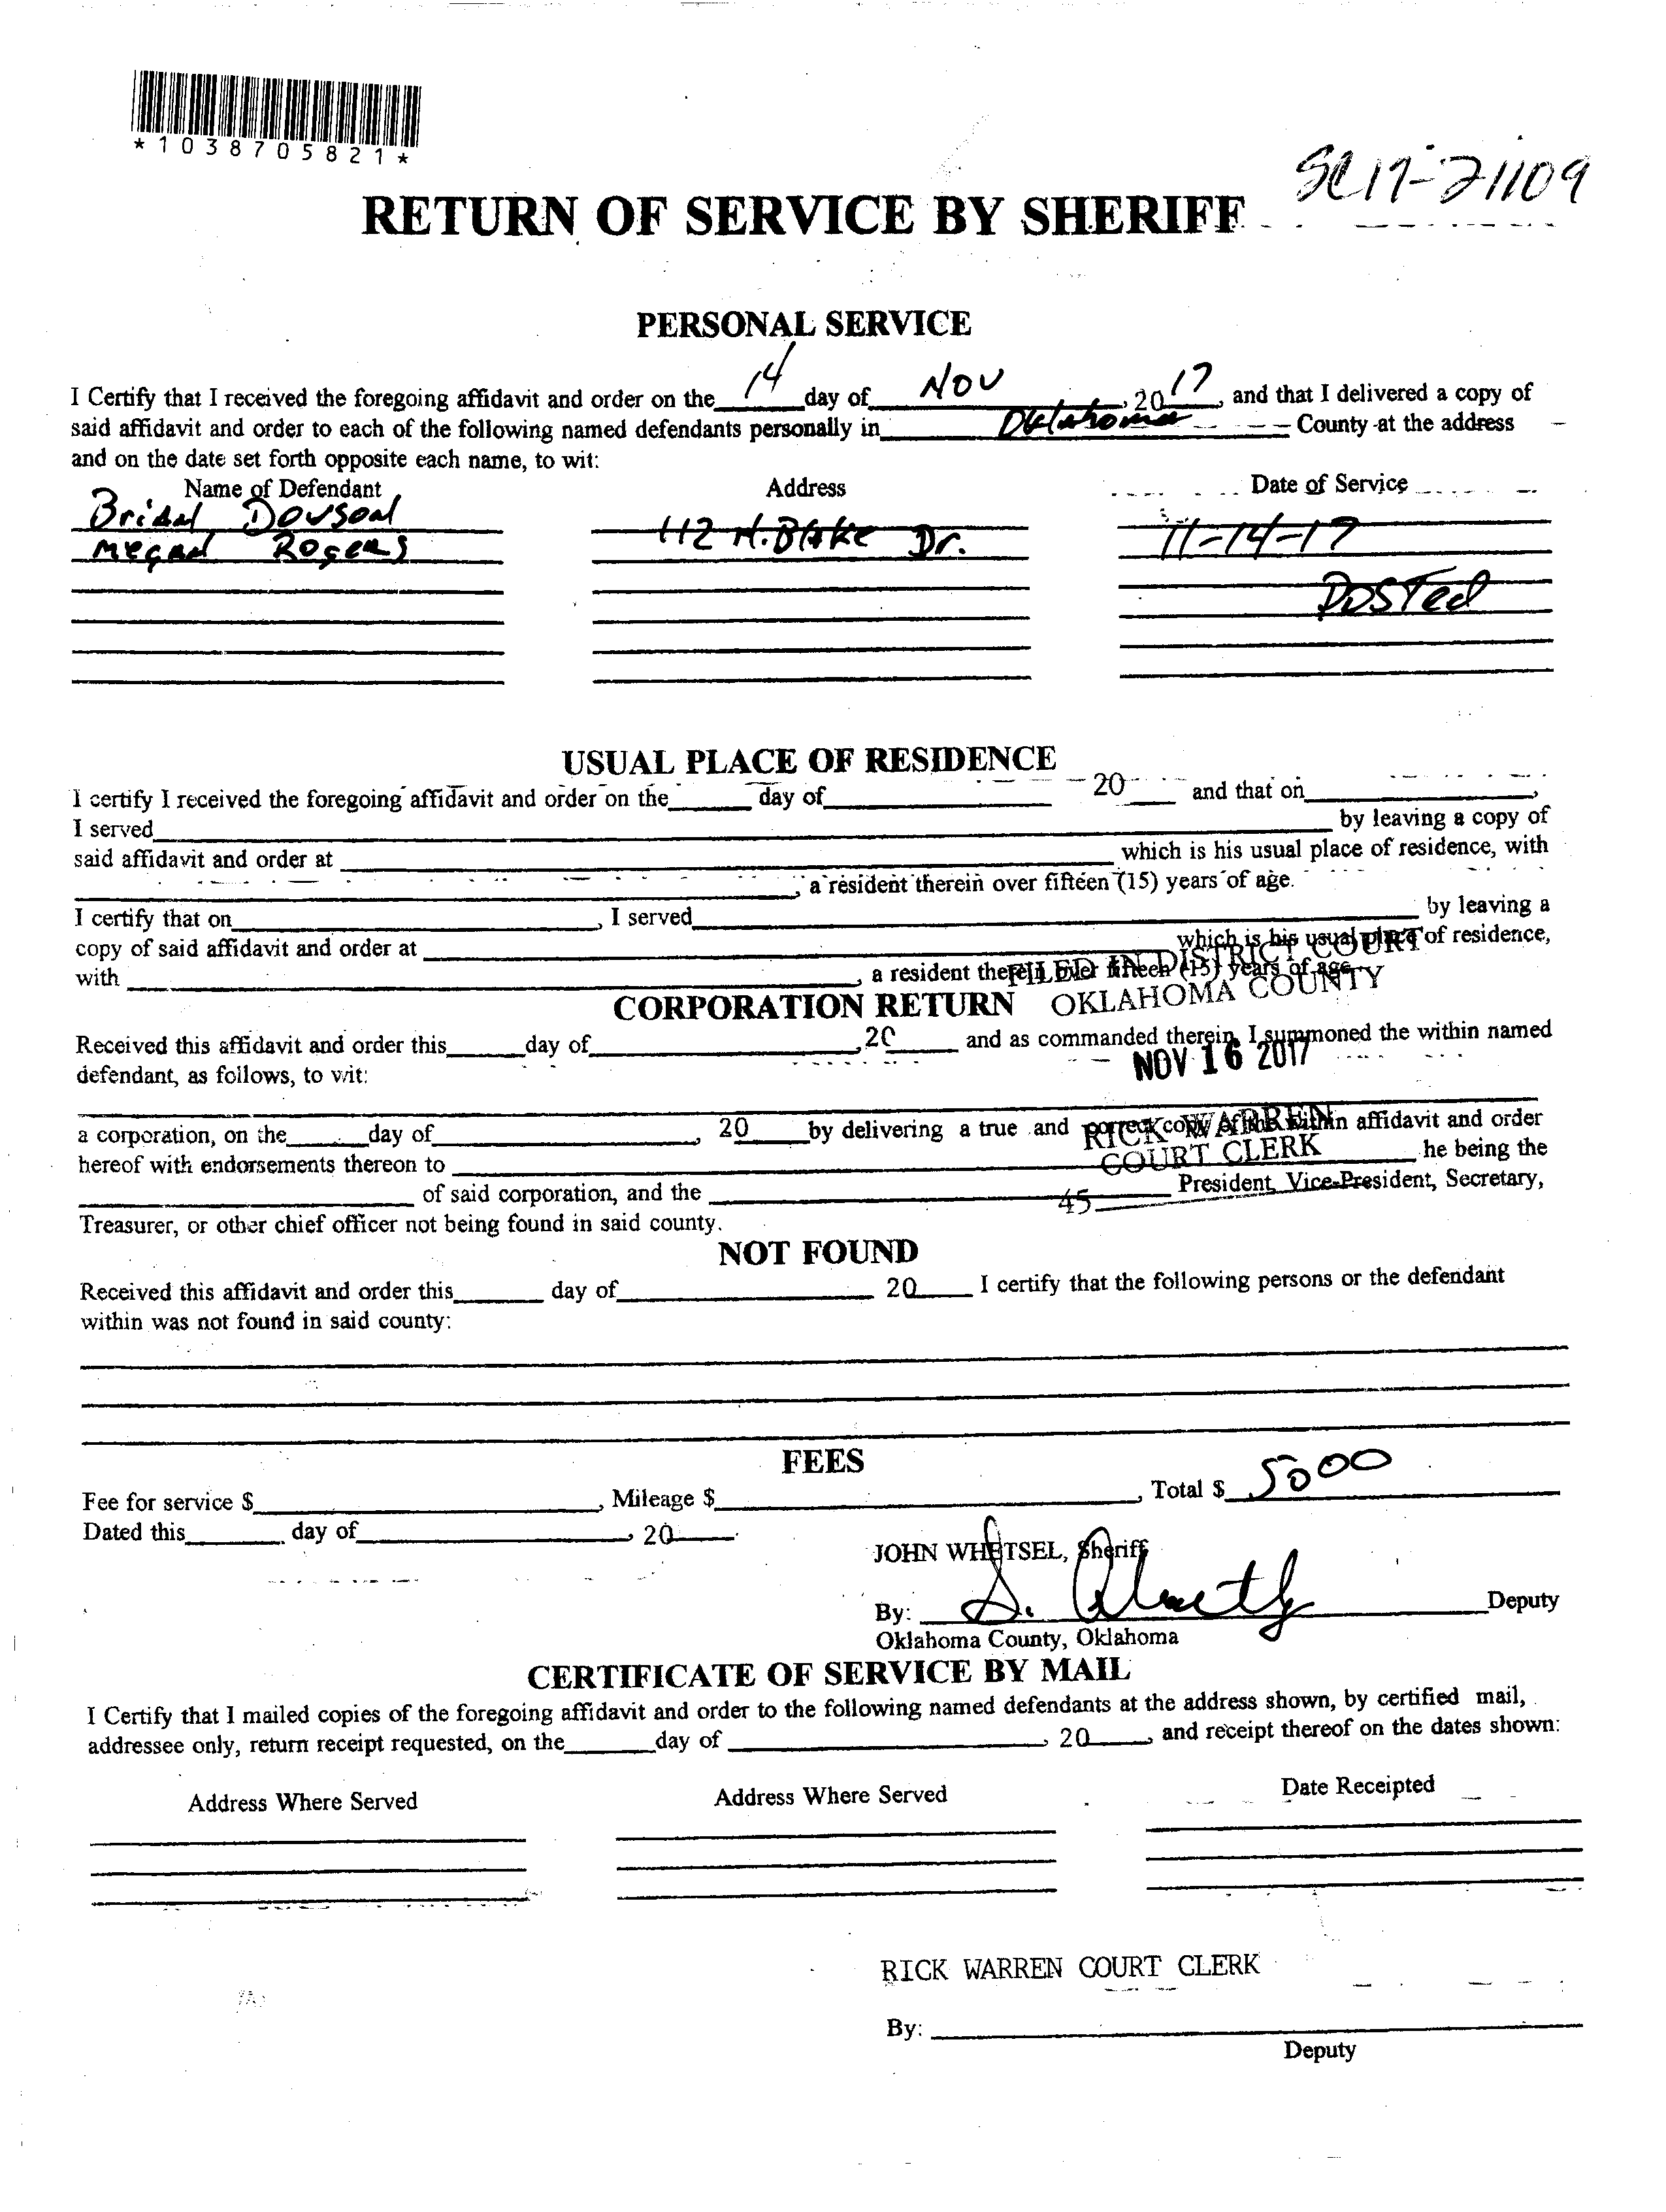 *1038705821*
SC17-21109
RETURN OF SERVICE BY SHERIFF
PERSONAL SERVICE
I Certify that I received the foregoing affidavit and order on the 14 day of NOV, 2017, and that I delivered a copy of
said affidavit and order to each of the following named defendants personally in Oklahoma County at the address
and on the date set forth opposite each name, to wit:
Name of Defendant Address Date of Service
Brian Dovson 112 N. Blake Dr. 11-14-17
Megan Rogers
POSTed
USUAL PLACE OF RESIDENCE
I certify I received the foregoing affidavit and order on the day of 20 and that on ,
I served by leaving a copy of
said affidavit and order at which is his usual place of residence, with
, a resident therein over fifteen (15) years of age.
I certify that on , I served by leaving a
copy of said affidavit and order at which is his usual place of residence,
with , a resident therein over fifteen (15) years of age.
FILED IN DISTRICT COURT
OKLAHOMA COUNTY
CORPORATION RETURN
Received this affidavit and order this day of , 20 and as commanded therein, I summoned the within named
defendant, as follows, to wit:
NOV 16 2017
a corporation, on the day of , 20 by delivering a true and correct copy of the within affidavit and order
RICK WARREN
COURT CLERK
hereof with endorsements thereon to he being the
of said corporation, and the President, Vice-President, Secretary,
45
Treasurer, or other chief officer not being found in said county.
NOT FOUND
Received this affidavit and order this day of 20 I certify that the following persons or the defendant
within was not found in said county:
FEES
Fee for service $ , Mileage $ , Total $ 5000
Dated this day of , 20
JOHN WHETSEL, Sheriff
By: S. Deputy
Oklahoma County, Oklahoma
CERTIFICATE OF SERVICE BY MAIL
I Certify that I mailed copies of the foregoing affidavit and order to the following named defendants at the address shown, by certified mail,
addressee only, return receipt requested, on the day of , 20 , and receipt thereof on the dates shown:
Address Where Served Address Where Served Date Receipted
RICK WARREN COURT CLERK
By:
Deputy